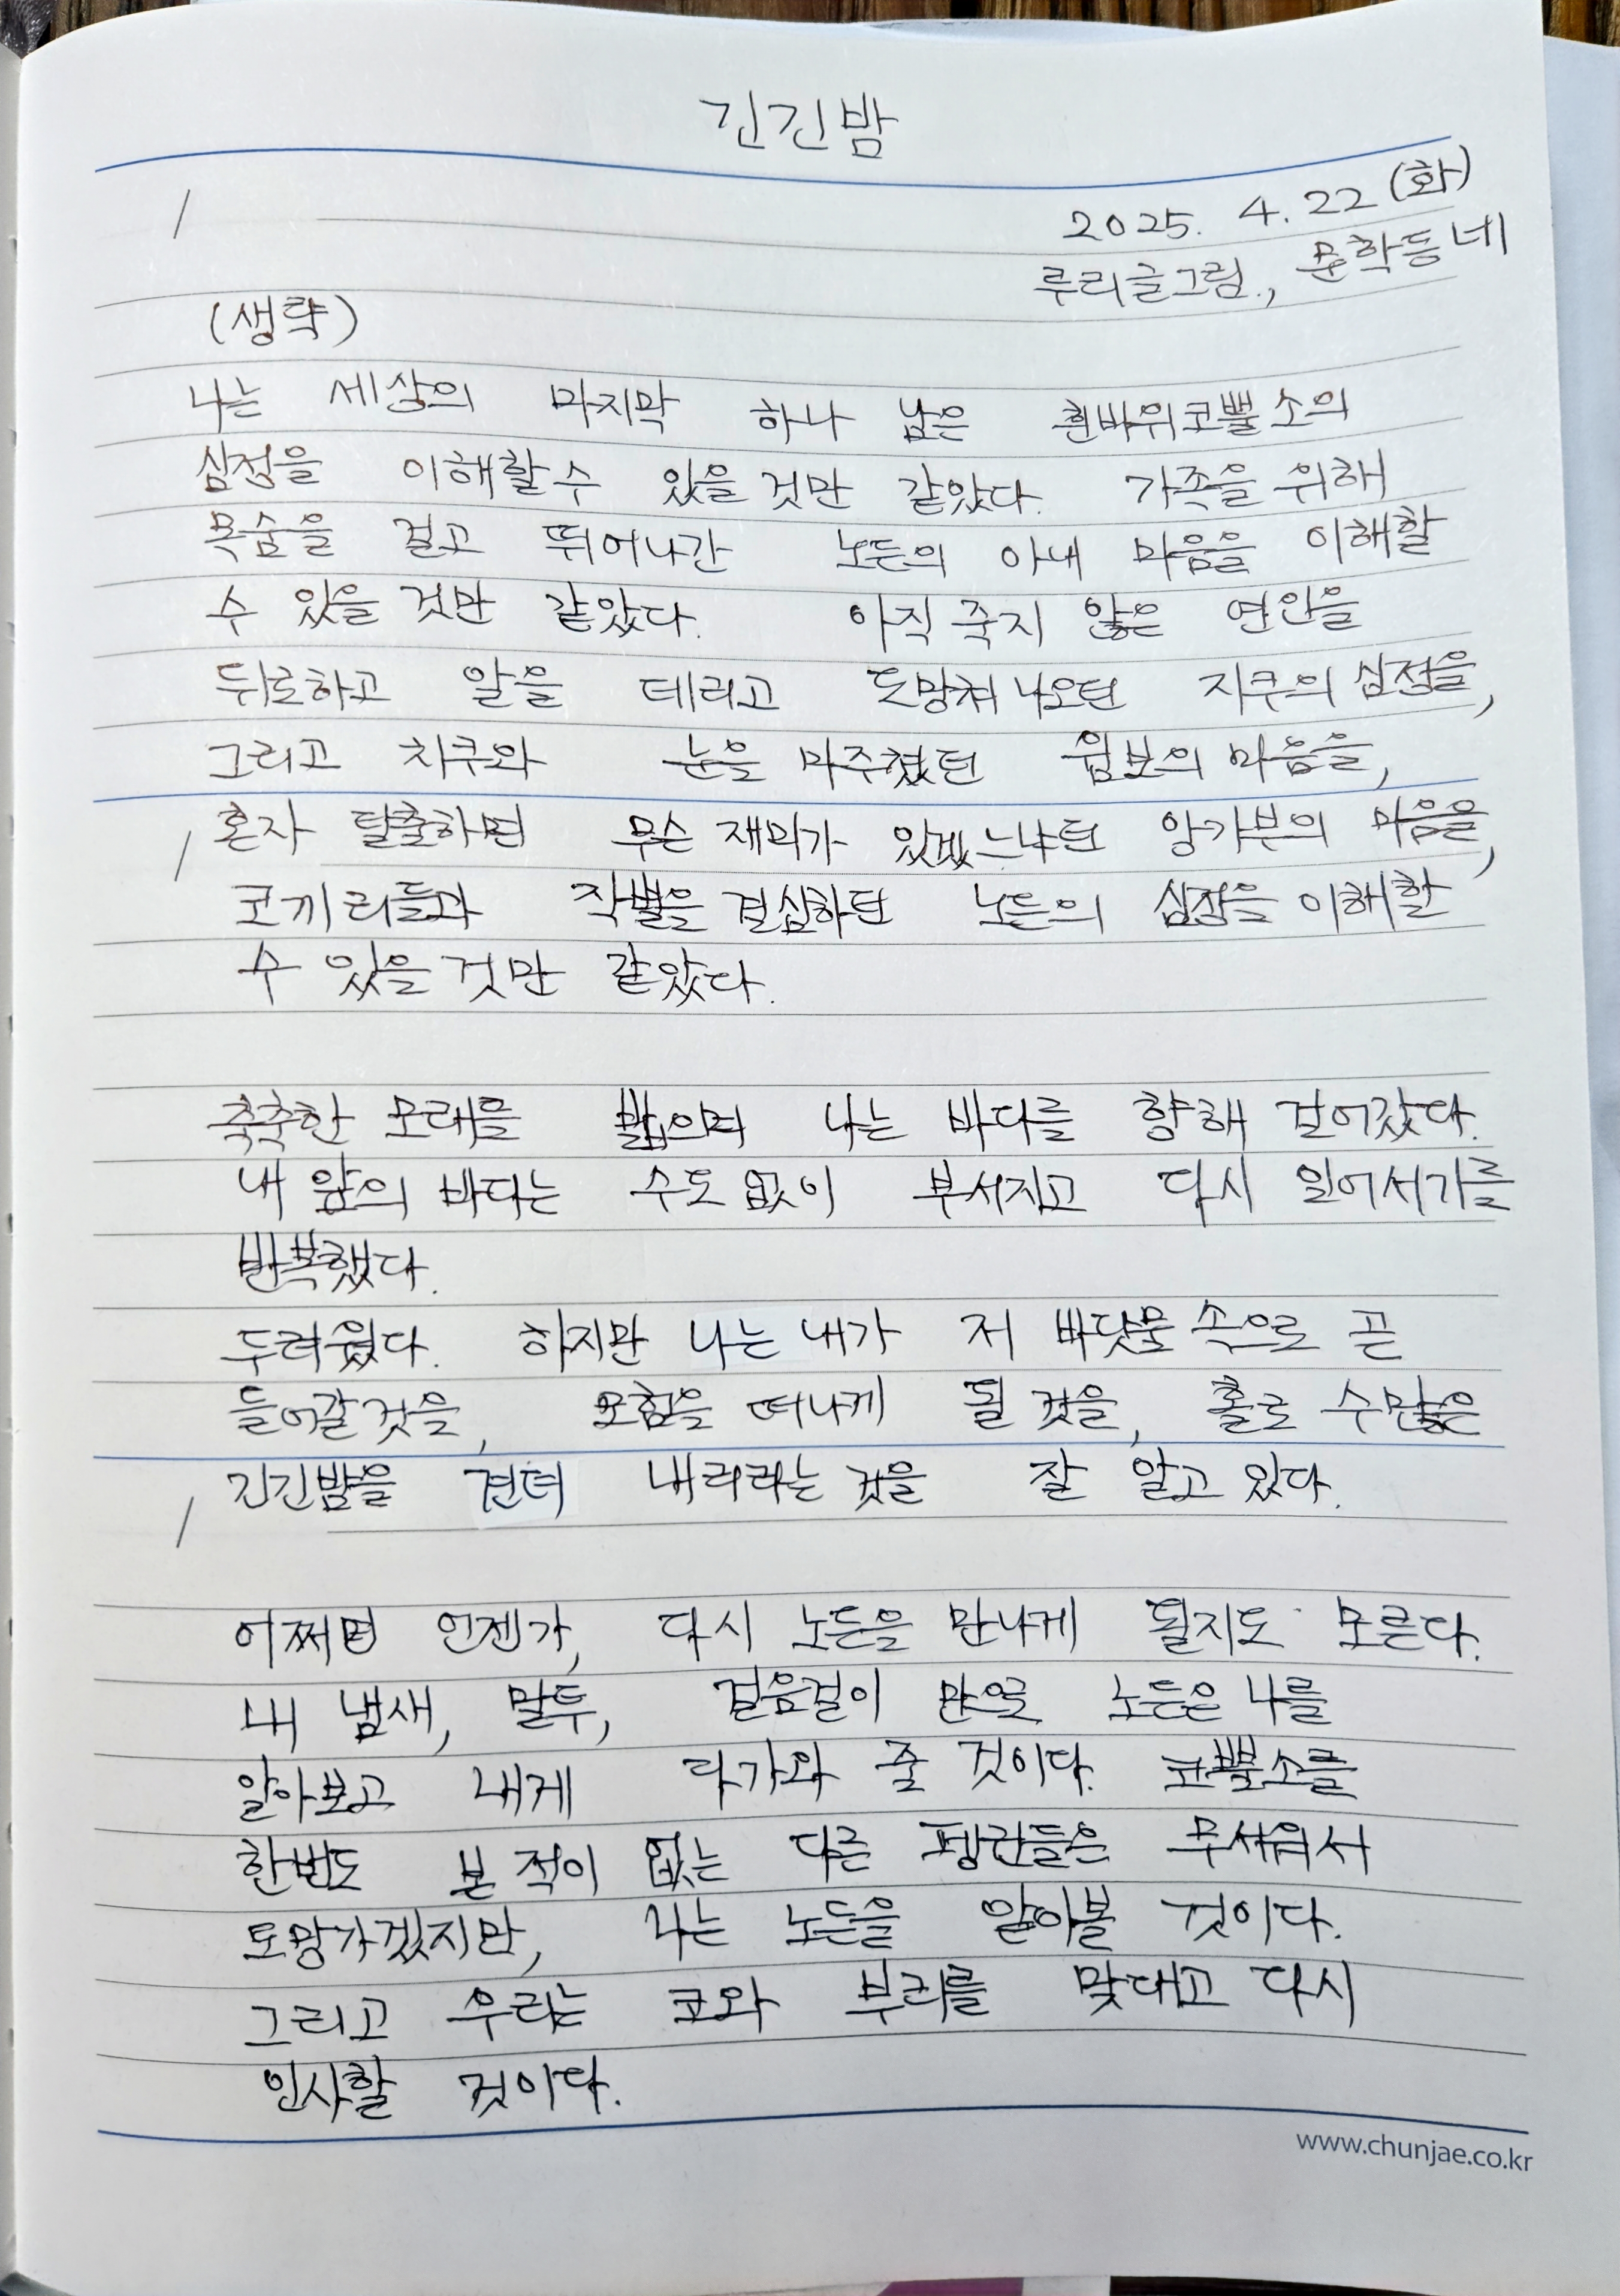 긴긴밤
2025. 4. 22 (화)
루리글그림., 문학동네
(생략)
나는 세상의 마지막 하나 남은 흰바위코뿔소의
심정을 이해할 수 있을 것만 같았다. 가족을 위해
목숨을 걸고 뛰어나간 노든의 아내 마음을 이해할
수 있을 것만 같았다. 아직 죽지 않은 연인을
뒤로하고 알을 데리고 도망쳐 나오던 치쿠의 심정을,
그리고 치쿠와 눈을 마주쳤던 윔보의 마음을,
혼자 탈출하면 무슨 재미가 있겠느냐던 앙가부의 마음을,
코끼리들과 작별을 결심하던 노든의 심정을 이해할
수 있을 것만 같았다.
축축한 모래를 밟으며 나는 바다를 향해 걸어갔다.
내 앞의 바다는 수도 없이 부서지고 다시 일어서기를
반복했다.
두려웠다. 하지만 나는 내가 저 바닷물 속으로 곧
들어갈 것을, 모험을 떠나게 될 것을, 홀로 수많은
긴긴밤을 견뎌 내리라는 것을 잘 알고 있다.
어쩌면 언젠가, 다시 노든을 만나게 될지도 모른다.
내 냄새, 말투, 걸음걸이 만으로 노든은 나를
알아보고 내게 다가와 줄 것이다. 코뿔소를
한번도 본 적이 없는 다른 펭귄들은 무서워서
도망가겠지만, 나는 노든을 알아볼 것이다.
그리고 우리는 코와 부리를 맞대고 다시
인사할 것이다.
www.chunjae.co.kr